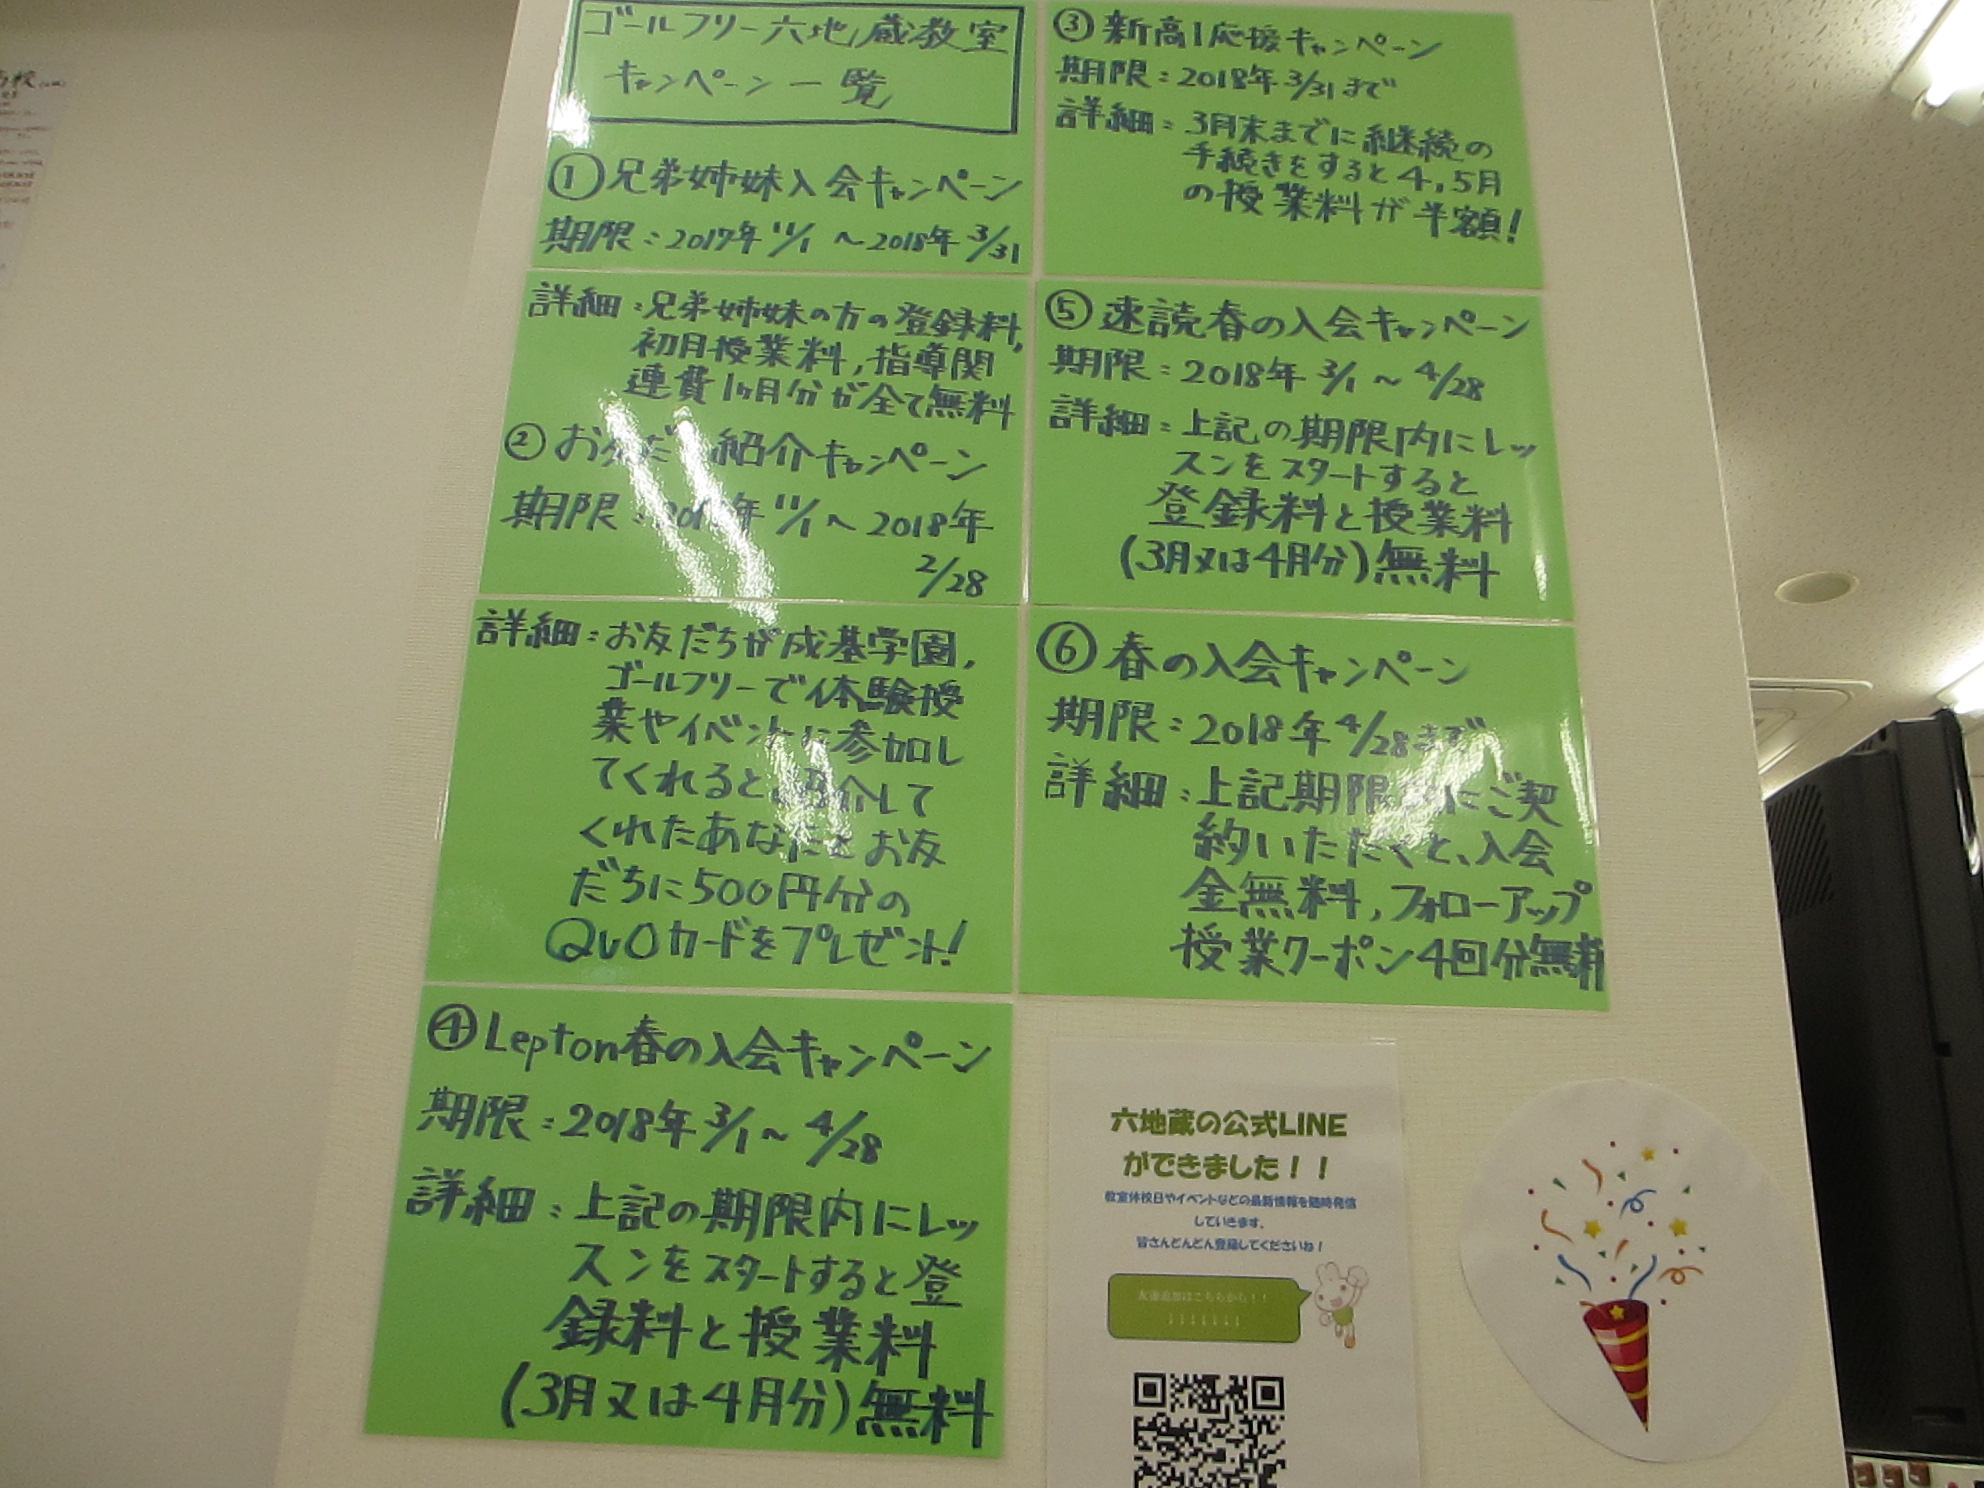 ゴールフリー六地蔵教室
キャンペーン一覧
①兄弟姉妹入会キャンペーン
期限:2017年11/1～2018年3/31
詳細:兄弟姉妹の方の登録料,
初月授業料,指導関
連費1ヶ月分が全て無料
②お友だち紹介キャンペーン
期限:2017年11/1～2018年
2/28
詳細:お友だちが成基学園,
ゴールフリーで体験授
業やイベントに参加し
てくれると、紹介して
くれたあなたとお友
だちに500円分の
QUOカードをプレゼント!
④Lepton春の入会キャンペーン
期限:2018年3/1～4/28
詳細:上記の期限内にレッ
スンをスタートすると登
録料と授業料
(3月又は4月分)無料
③新高1応援キャンペーン
期限:2018年3/31まで
詳細:3月末までに継続の
手続きをすると4,5月
の授業料が半額!
⑤速読春の入会キャンペーン
期限:2018年3/1～4/28
詳細:上記の期限内にレッ
スンをスタートすると
登録料と授業料
(3月又は4月分)無料
⑥春の入会キャンペーン
期限:2018年4/28まで
詳細:上記期限内にご契
約いただくと、入会
金無料,フォローアップ
授業クーポン4回分無料
六地蔵の公式LINE
ができました！！
教室休校日やイベントなどの最新情報を随時発信
していきます。
皆さんどんどん登録してくださいね！
友達追加はこちらから！！
↓↓↓↓↓↓↓